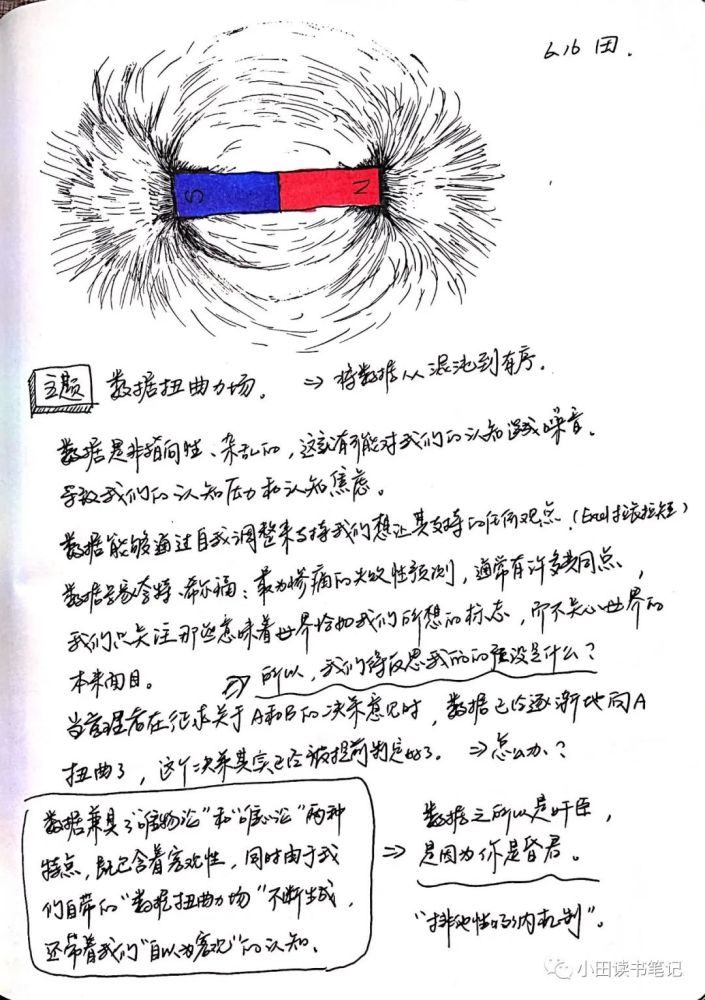 6.16 田.
S
N
主题 数据扭曲力场. ⇒ 将数据从混沌到有序.
数据是非指向性、杂乱的,这就有可能对我们的认知造成噪音.
导致我们的认知压力和认知焦虑。
数据能够通过自我调整来支持我们想让其支持的任何观点.(Excel 拉长拉短)
数据专家奈特·希尔福:最为惨痛的失败性预测,通常有许多共同点,
我们只关注那些意味着世界恰如我们所想的标志,而不关心世界的
本来面目。 ⇒ 所以,我们得反思我的的假设是什么?
当管理者在征求关于A和B的决策意见时,数据已经逐渐地向A
扭曲了,这个决策其实已经被提前制定好了。 ⇒ 怎么办?
数据兼具了“唯物论”和“唯心论”两种
特点,既包含着客观性,同时由于我
们自带的“数据扭曲力场”不断生成,
还带着我们“自以为客观”的认知.
⇒ 数据之所以是奸臣,
是因为你是昏君。
“排他性的内机制”.
小田读书笔记